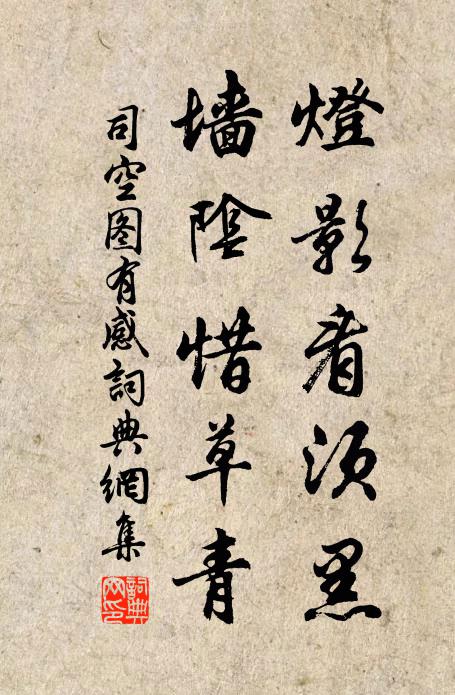 燈影看須黑
墻陰惜草青
司空图有感詞典網集
詞典网印